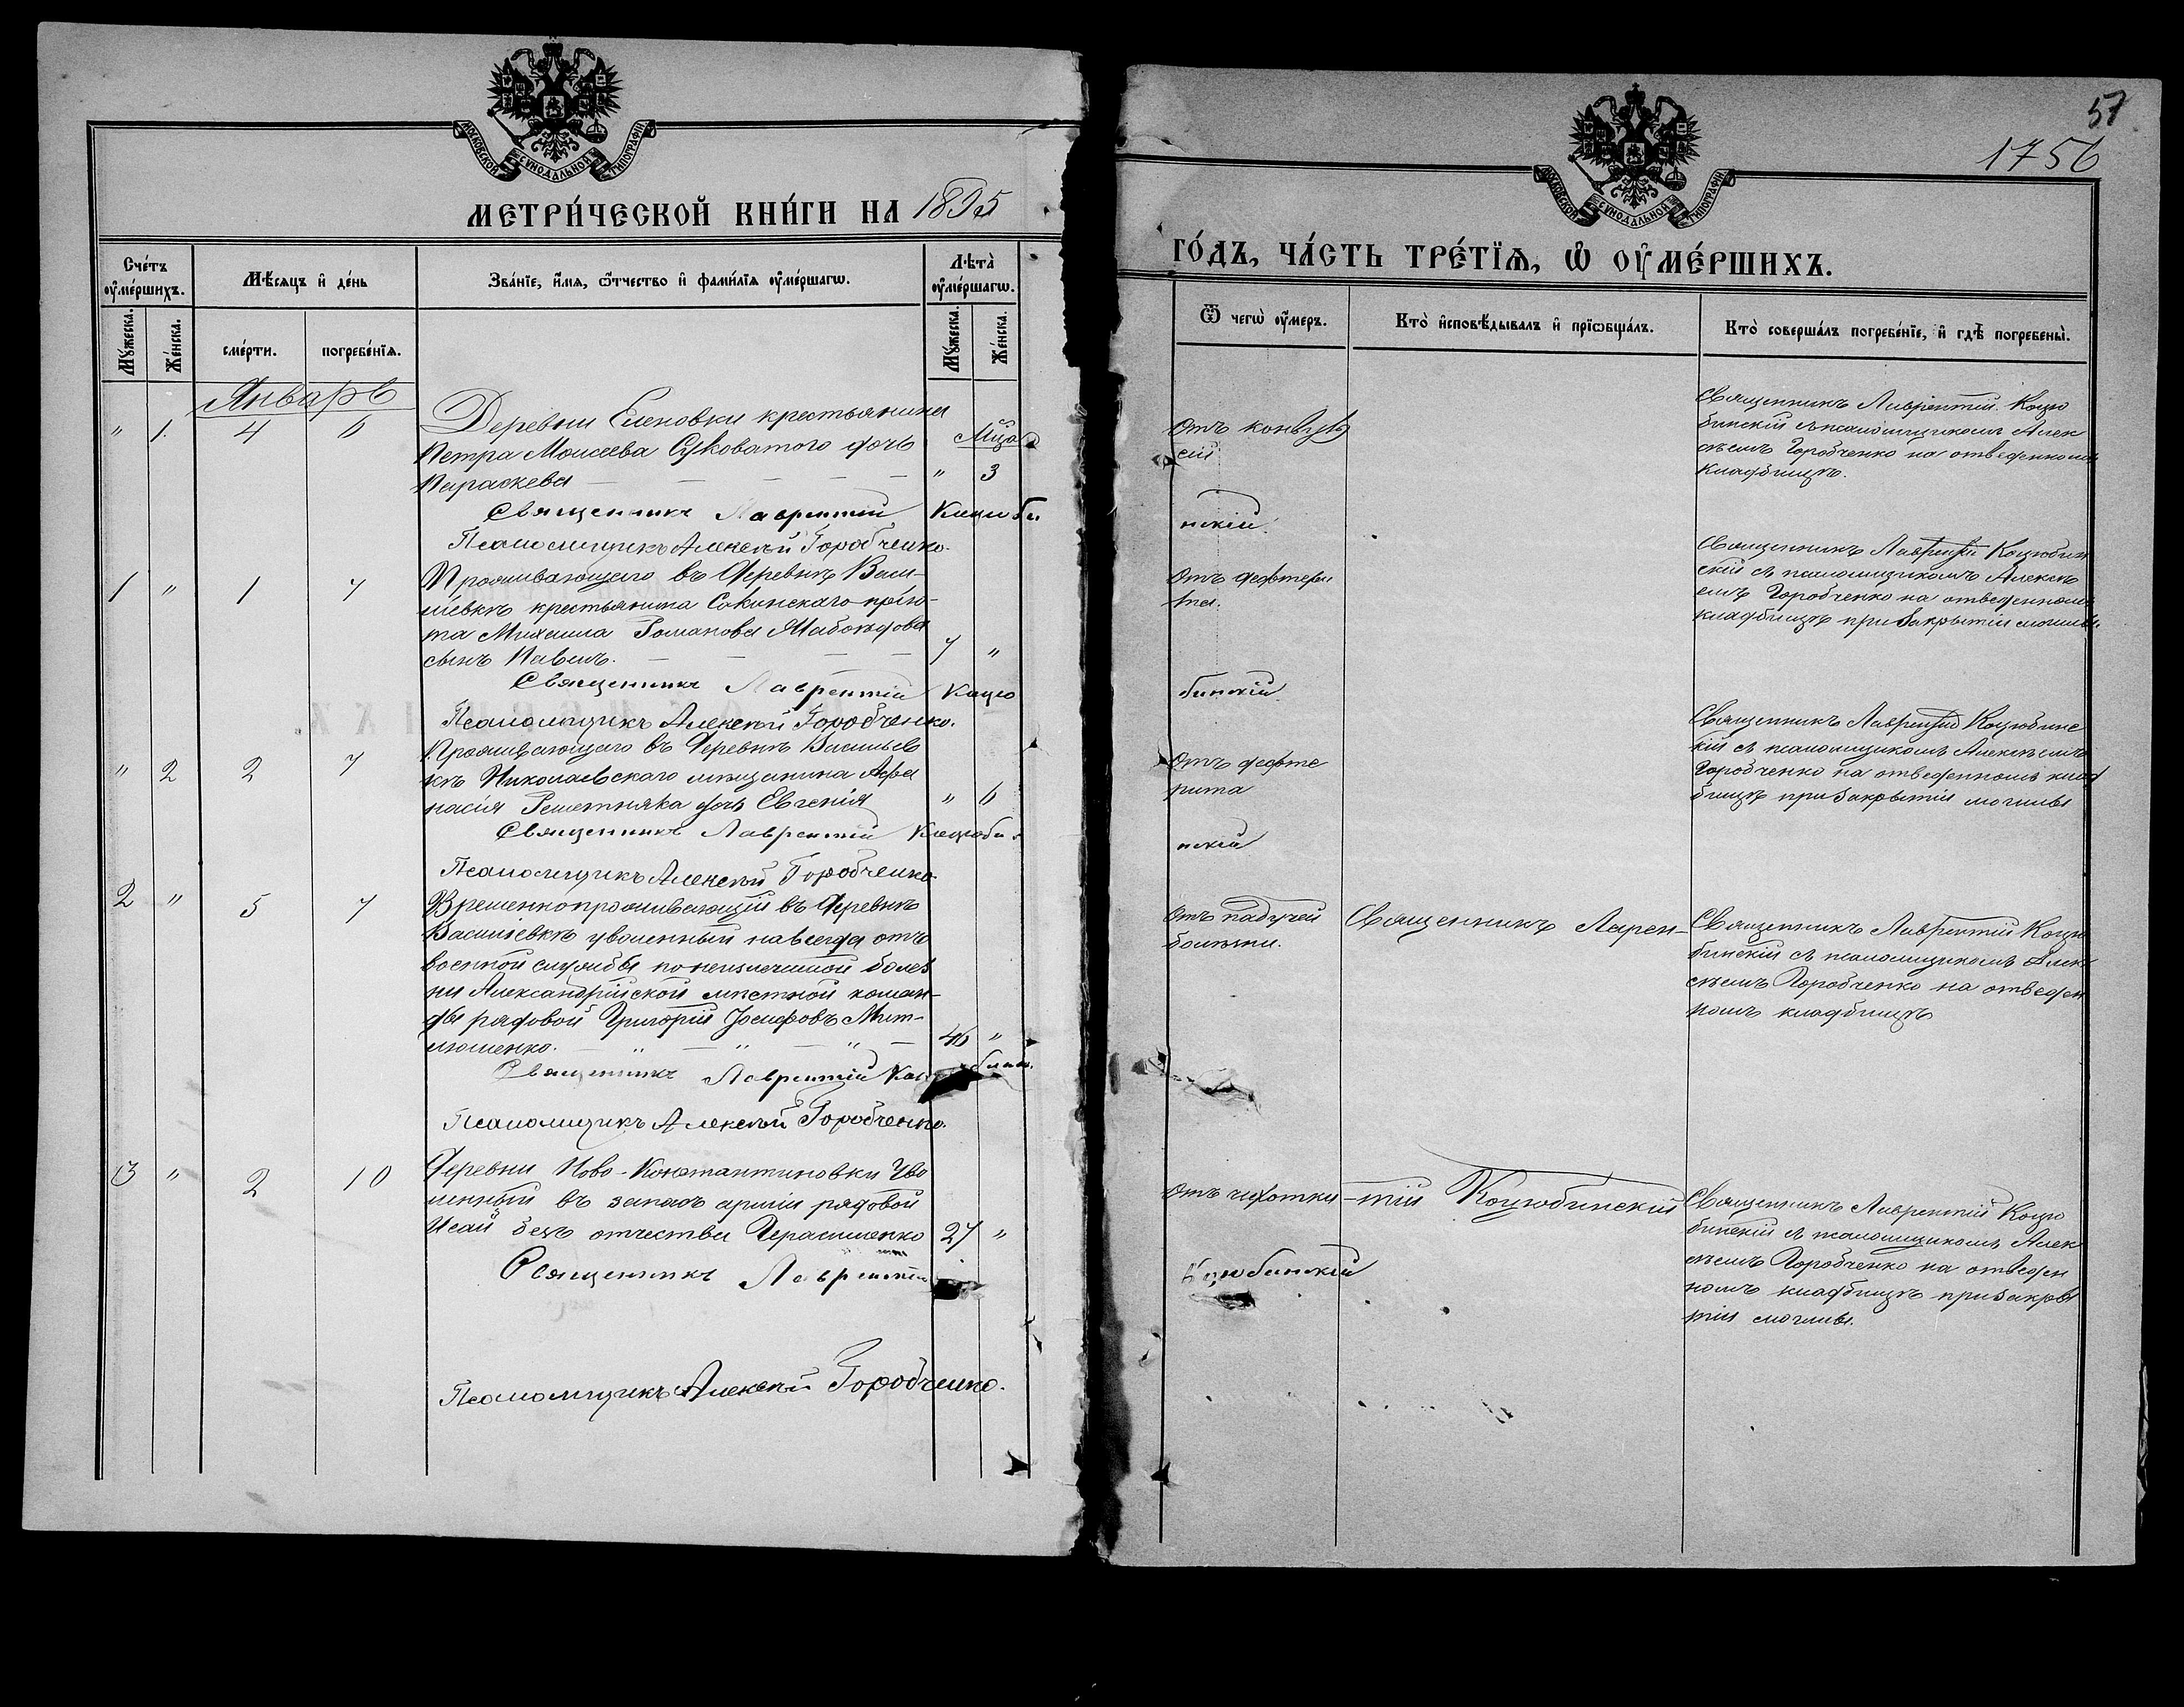 МОСКОВСКОЙ СУНОДАЛЬНОЙ ТИПОГРАФІИ
МЕТРИ́ЧЕСКОЙ КНИ́ГИ НА 1895
Сче́тъ оу҆ме́ршихъ.
Мѣ́сяцъ и҆ де́нь
Зва́нїе, и҆́мѧ, ѻ҆́тчество и҆ фами́лїѧ оу҆ме́ршагѡ.
Лѣта̀ оу҆ме́ршагѡ.
Мꙋ́жеска.
Же́нска.
сме́рти.
погребе́нїѧ.
Мꙋ́жеска.
Же́нска.
Январь
" 1. 4 6 Деревни Еленовки крестьянина
Петра Моисеева Суковатого дочь Мѣс
Параскева — — — — — " 3
Священникъ Лаврентій Коцюби
Псаломщикъ Алексѣй Горобченко.
1 " 1 7 Проживающаго въ деревнѣ Васи-
лiевкѣ крестьянина
та Михаила Романова
сынъ Павелъ. — — — — 7 "
Священникъ Лаврентій Коцю
Псаломщикъ Алексѣй Горобченко.
" 2 2 7 Проживающаго въ деревнѣ Васильев
кѣ Николаевскаго мѣщанина Афа
насія Решетняка дочь Евгенія " 6
Священникъ Лаврентій Коцюби
Псаломщикъ Алексѣй Горобченко
2 " 5 7 Временнопроживающій въ деревнѣ
Василіевкѣ уволенный навсегда отъ
военной службы по неизлечимой болѣз
ни Александрійской мѣстной коман-
ды рядовой Григорій Іосифовъ Мит-
люшенко. — " — " — " — 46 "
Священникъ Лаврентій
Псаломщикъ Алексѣй Горобченко.
3 " 2 10 Деревни Ново-Константиновки Уво
ленный въ запасъ арміи рядовой
Исай безъ отчества Герасименко 27 "
Священникъ Лаврентій
Псаломщикъ Алексѣй Горобченко.
57
1756
МОСКОВСКОЙ СУНОДАЛЬНОЙ ТИПОГРАФІИ
ГО́ДЪ, ЧА́СТЬ ТРЕ́ТЇѦ, Ѡ҆ ОУ҆МЕ́РШИХЪ.
Ѿ чегѡ̀ оу҆́меръ.
Кто̀ и҆сповѣ́дывалъ и҆ прїѡбща́лъ.
Кто̀ соверша́лъ погребе́нїе, и҆ гдѣ̀ погребены̀.
Отъ конвуль
сій
Священникъ Лаврентій Коцю
бинскій съ псаломщикомъ Алек
сѣемъ Горобченко на отведенномъ
кладбищѣ.
нскій
Отъ дефтери
та.
Священникъ Лаврентій Коцюбин
скій съ псаломщикомъ Алексѣ
емъ Горобченко на отведенномъ
кладбищѣ при закрытіи могилы.
бинскій
Отъ дефте
рита
Священникъ Лаврентій Коцюбинс
кій съ псаломщикомъ Алексѣемъ
Горобченко на отведенномъ клад
бищѣ при закрытіи могилы
нскій
Отъ падучей
болѣзни.
Священникъ Ларен-
Священникъ Лаврентій Коцю
бинскій съ псаломщикомъ Алек
сѣемъ Горобченко на отведен
номъ кладбищѣ
Отъ чихотки
-тій Коцюбинскій
Священникъ Лаврентій Коцю
бинскій съ псаломщикомъ Алек
сѣемъ Горобченко на отведен
номъ кладбищѣ при закры
тіи могилы.
Коцюбинскій